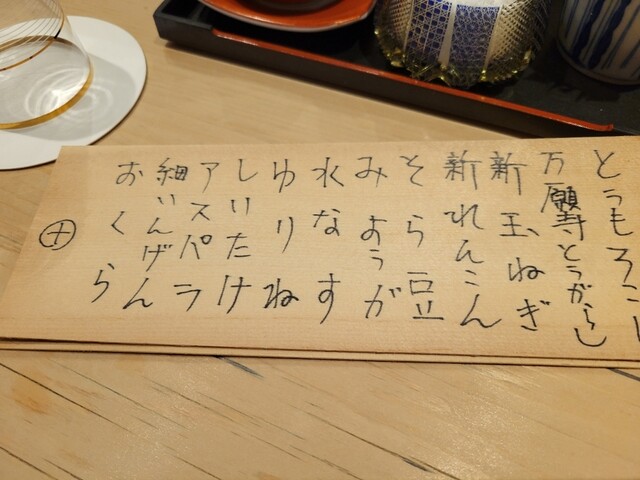 とうもろこし
万願寺とうがらし
新玉ねぎ
新れんこん
そら豆
みょうが
水なす
ゆりね
しいたけ
アスパラ
細いんげん
おくら
十